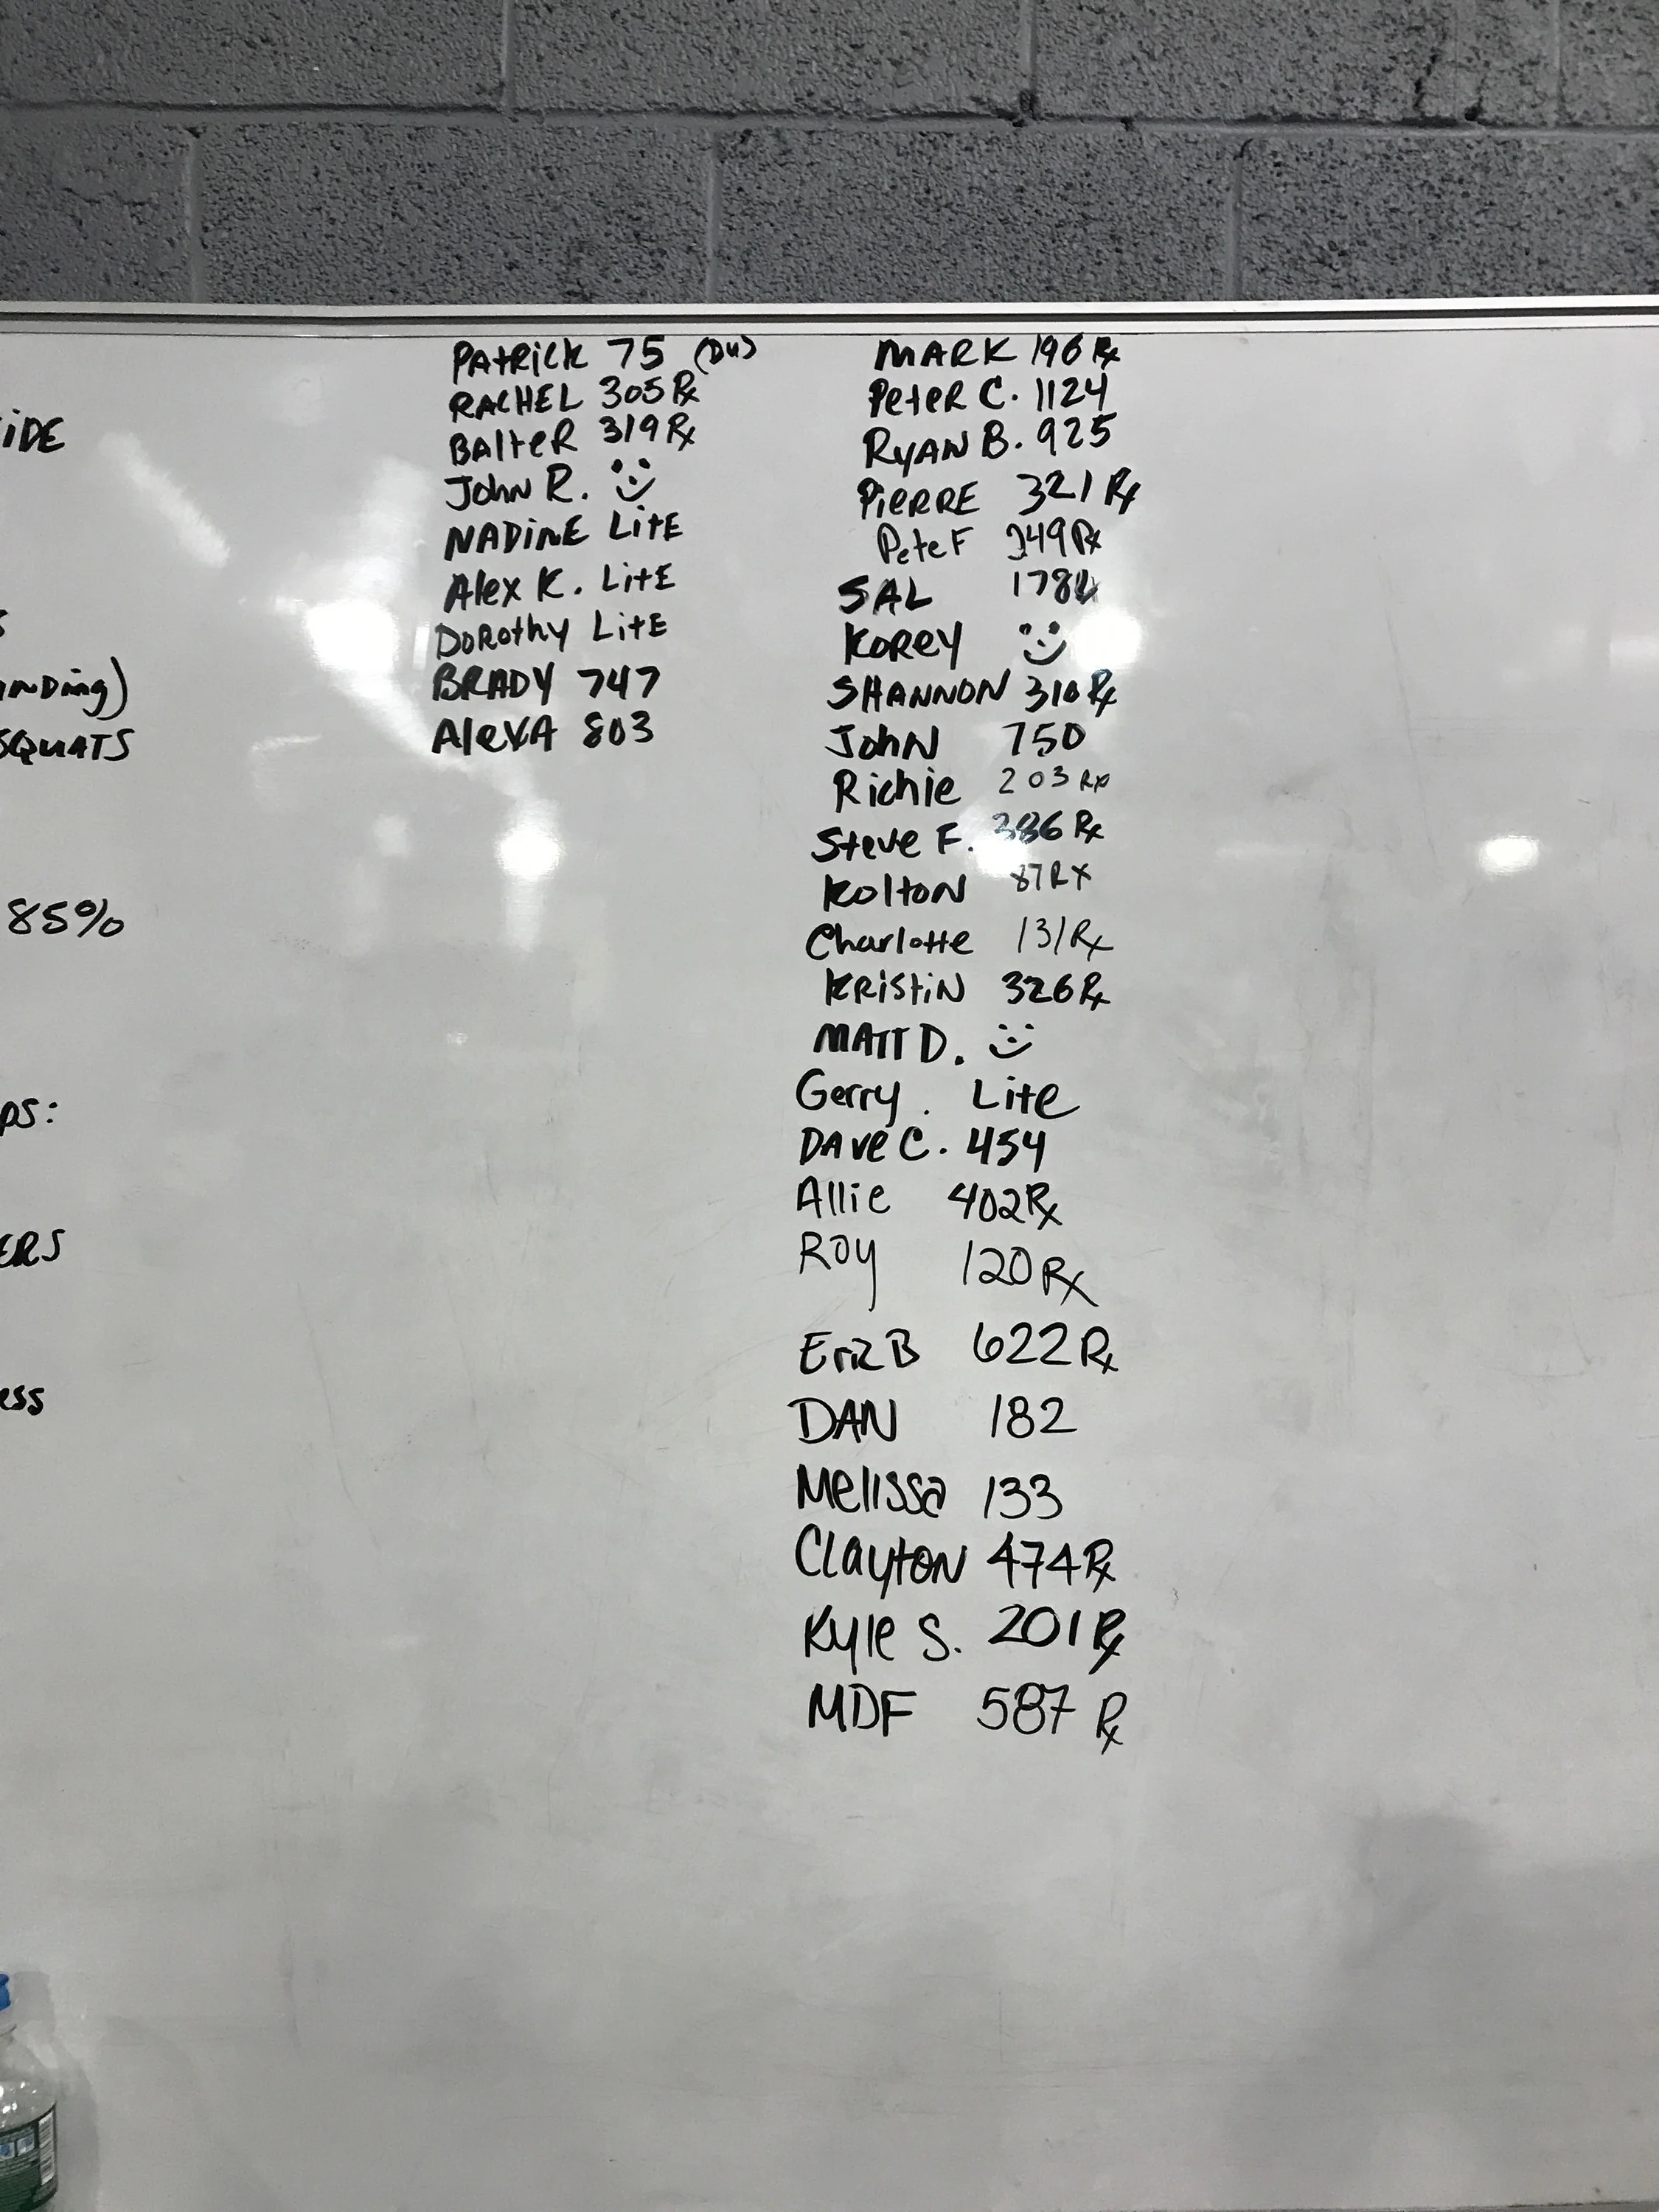 iDE
s
anDing)
SQUATS
85%
ps:
ERS
ess
PAtRiCk 75 (DU)
RACHEL 305 Rx
BAlteR 319 Rx
John R.
NADiNE LitE
Alex K. LitE
DoRothy LitE
BRADY 747
AlexA 803
MARK 196 Rx
PeteR C. 1124
RyAN B. 925
PiERRE 321 Rx
Pete F 249 Rx
SAL
KoRey
SHANNON 310 Rx
JohN 750
Richie 203 Rx
Steve F. 386 Rx
KoltoN 87 RX
Charlotte 131 Rx
KRiStiN 326 Rx
MATT D.
Gerry. Lite
DAve C. 454
Allie 402 Rx
Roy 120 Rx
Eric B 622 Rx
DAN 182
Melissa 133
ClaytoN 474 Rx
Kyle S. 201 Rx
MDF 587 Rx